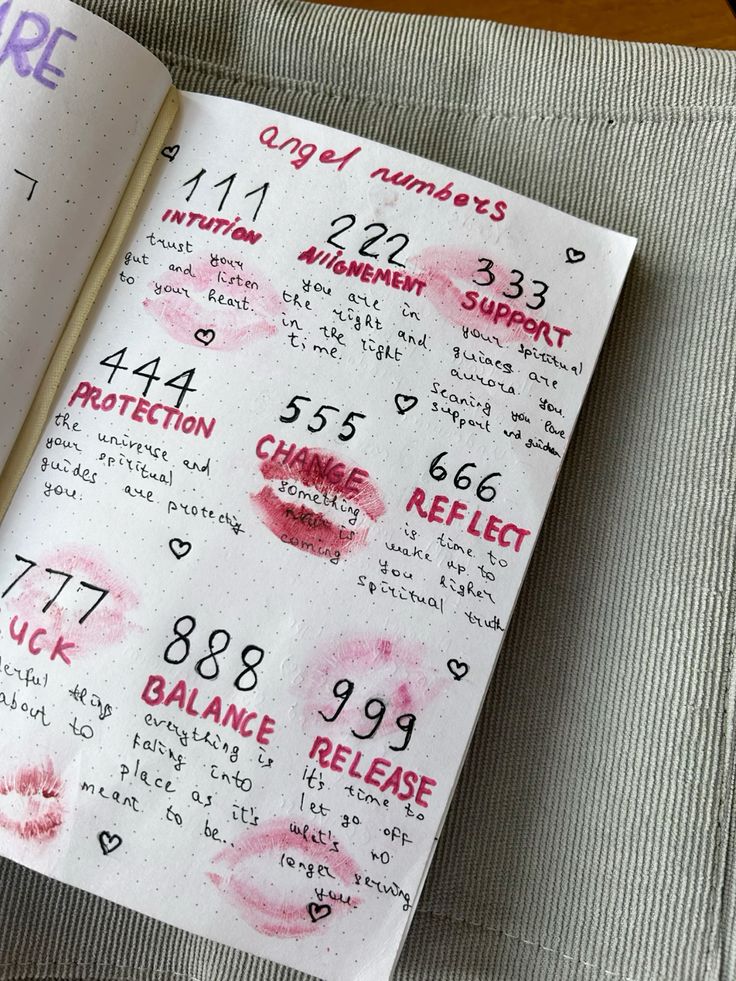 ARE
angel numbers
111
INTUTION
trust your
gut and listen
to your heart.
222
AlIGNEMENT
you are in
the right and
in the right
time.
333
SUPPORT
your spiritual
guides are
aurora you
seaning you love
support and
444
PROTECTION
the universe and
your spiritual
guides are protectig
you.
555
CHANGE
something
new is
coming
666
REFLECT
is time to
wake up to
you higher
spiritual truth
777
UCK
erful thing
about to
888
BALANCE
everything is
faling into
place as it's
meant to be...
999
RELEASE
It's time to
let go off
what's no
longer serving
you.